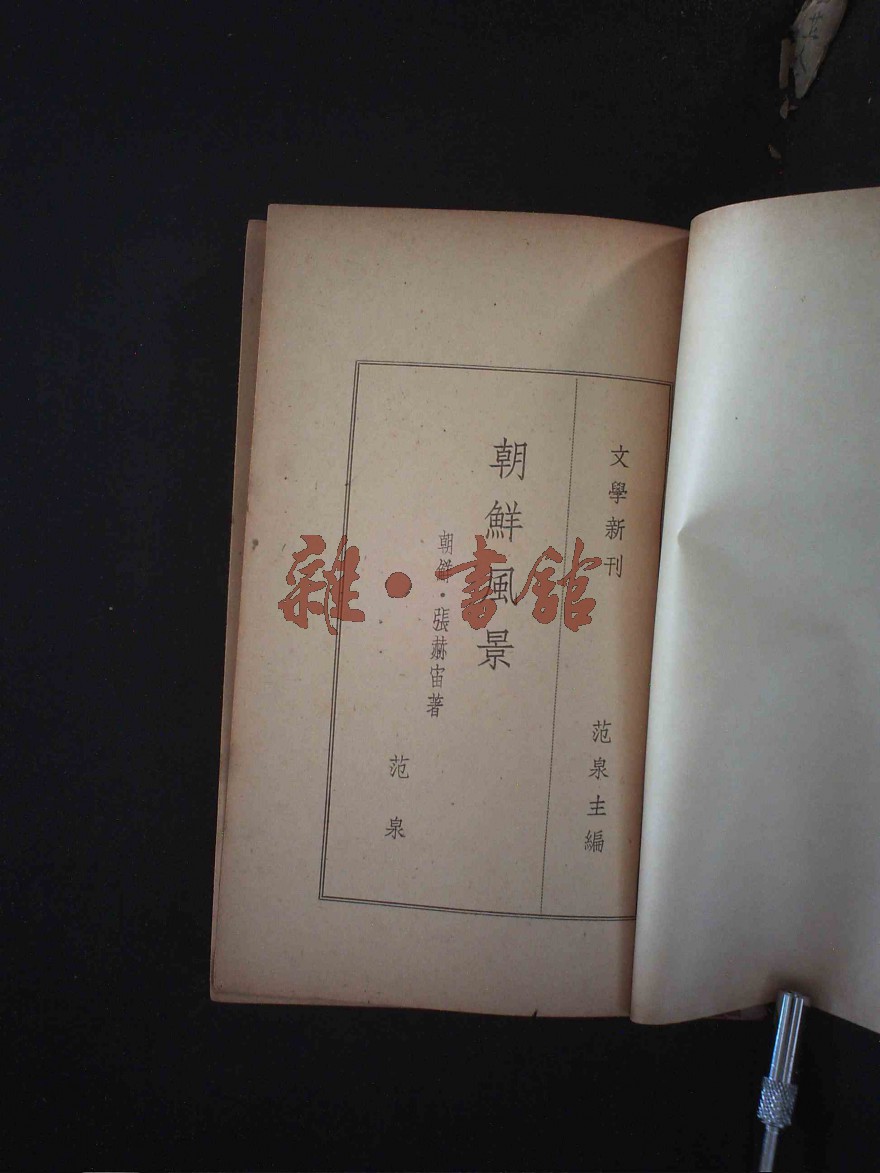 文學新刊
范泉主編
朝鮮風景
朝鮮·張赫宙著
范泉
雜·書館